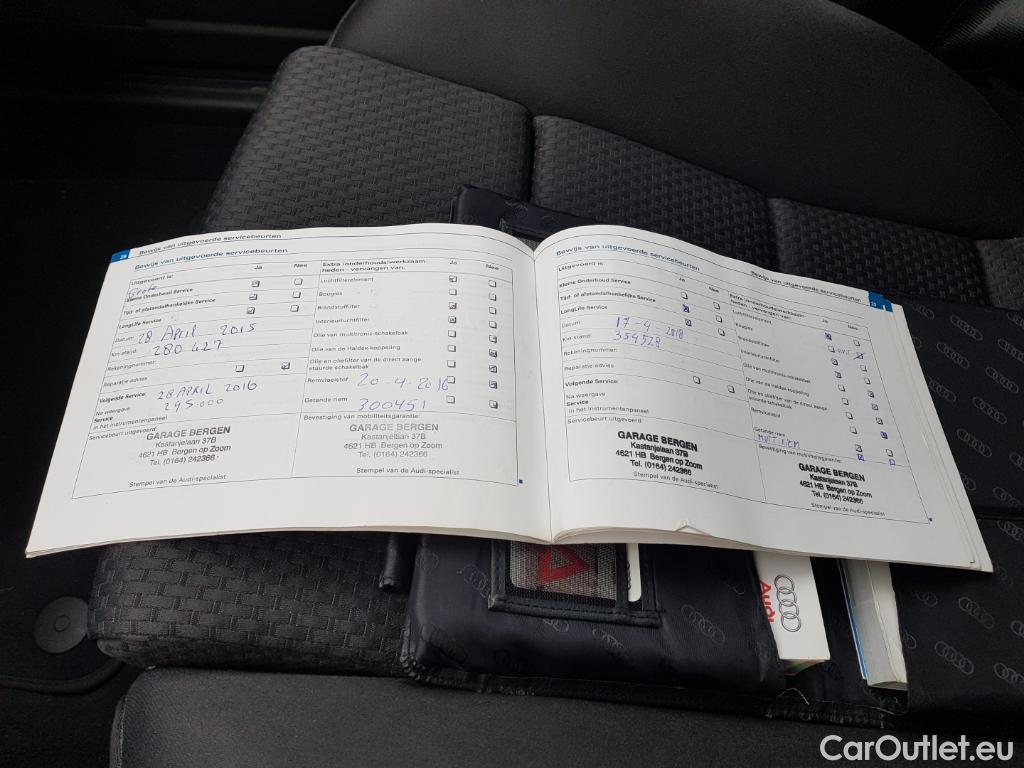 28 Bewijs van uitgevoerde servicebeurten
Bewijs van uitgevoerde servicebeurten
Uitgevoerd is: Ja Nee
Grote
Kleine Onderhoud Service
Tijd- of afstandafhankelijke Service
LongLife Service
Datum: 28 April - 2015
Km-stand: 280 427
Rekeningnummer:
Reparatie advies
Volgende Service: 28 APRIL 2016
Na weergave 295.000
Service
in het instrumentenpaneel
Servicebeurt uitgevoerd:
GARAGE BERGEN
Kastanjelaan 37B
4621 HB Bergen op Zoom
Tel. (0164) 242366
Stempel van de Audi-specialist
Extra (onderhouds)werkzaam-
heden - vervangen van: Ja Nee
Luchtfilterelement
Bougies
Brandstoffilter
Interieurluchtfilter
Olie van multitronic-schakelbak
Olie van de Haldex-koppeling
Olie en oliefilter van de direct zange-
stuurde schakelbak
Remvloeistof 20-4-2016
Getande riem 300451
Bevestiging van mobiliteitsgarantie:
GARAGE BERGEN
Kastanjelaan 37B
4621 HB Bergen op Zoom
Tel. (0164) 242366
Stempel van de Audi-specialist
Bewijs van uitgevoerde servicebeurten 29
Bewijs van uitgevoerde servicebeurten
Uitgevoerd is: Ja Nee
Kleine Onderhoud Service
Tijd- of afstandafhankelijke Service
LongLife Service
Datum: 17-4-2018
Km-stand: 354528
Rekeningnummer:
Reparatie advies
Volgende Service:
Na weergave
Service
in het instrumentenpaneel
Servicebeurt uitgevoerd:
GARAGE BERGEN
Kastanjelaan 37B
4621 HB Bergen op Zoom
Tel. (0164) 242366
Stempel van de Audi-specialist
Extra (onderhouds)werkzaam-
heden - vervangen van: Ja Nee
Luchtfilterelement
Bougies
Brandstoffilter
Interieurluchtfilter
Olie van multitronic-schakelbak
Olie van de Haldex-koppeling
Olie en oliefilter van de direct zange-
stuurde schakelbak
Remvloeistof
Getande riem
MULTIRIEM
Bevestiging van mobiliteitsgarantie:
GARAGE BERGEN
Kastanjelaan 37B
4621 HB Bergen op Zoom
Tel. (0164) 242366
Stempel van de Audi-specialist
Audi
CarOutlet.eu